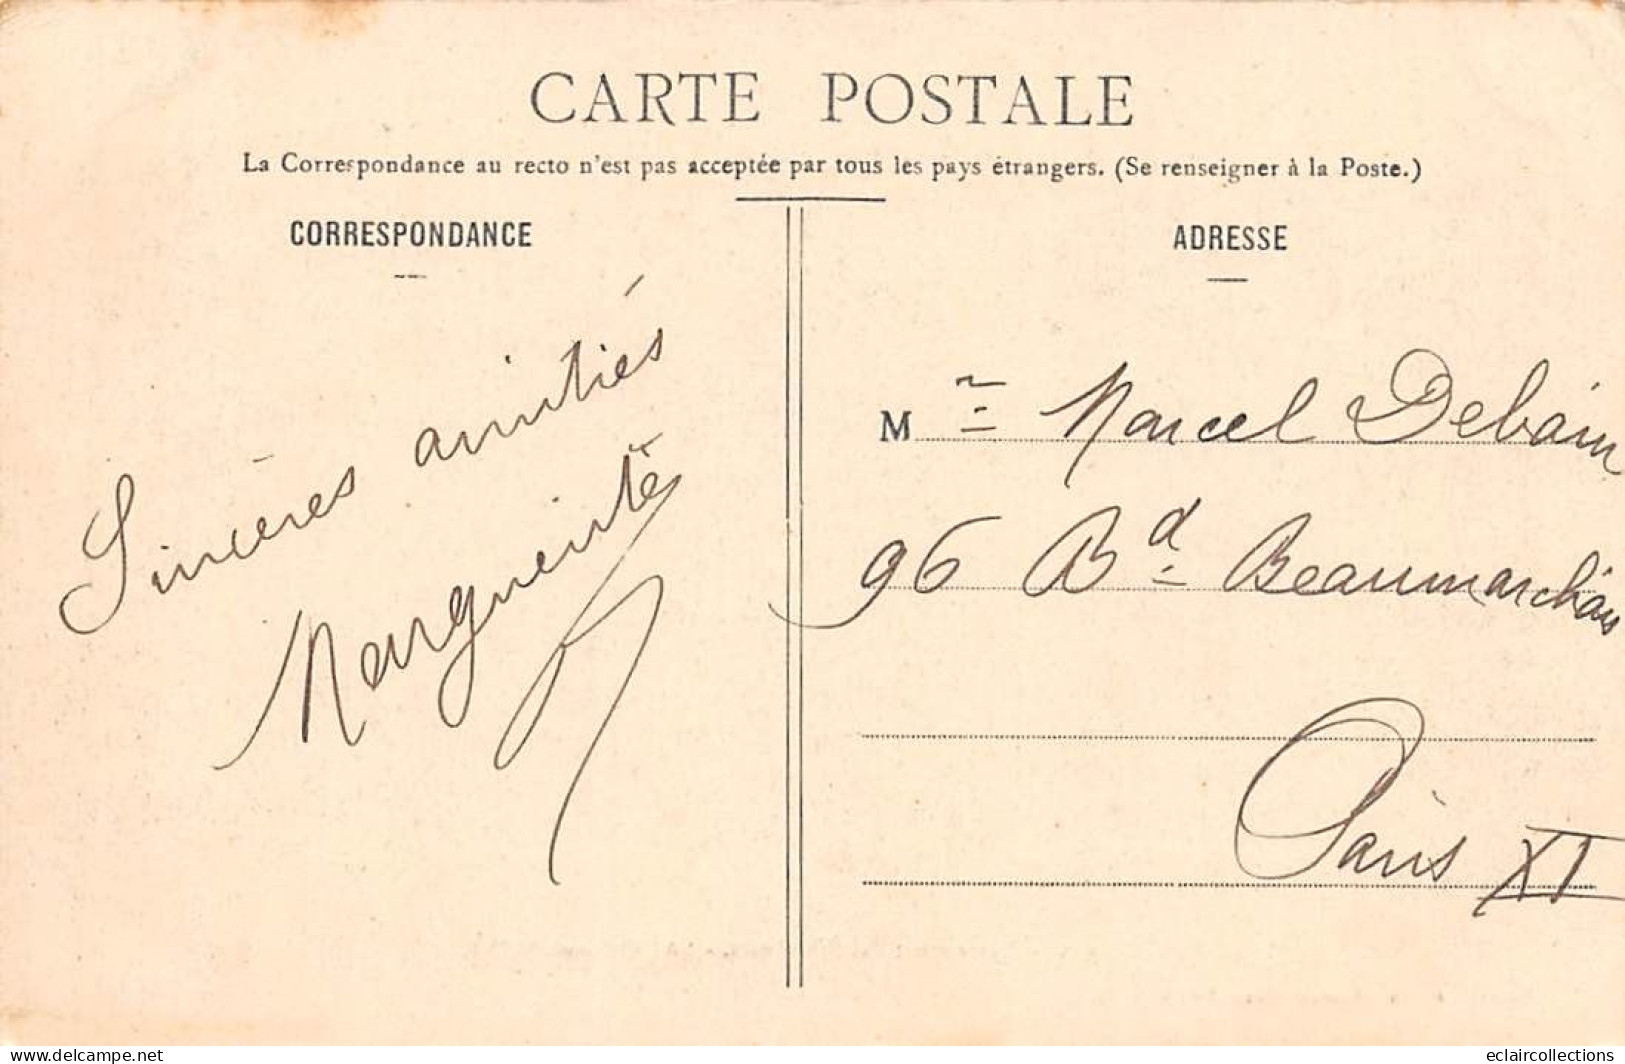 CARTE POSTALE
La Correspondance au recto n'est pas acceptée par tous les pays étrangers. (Se renseigner à la Poste.)
CORRESPONDANCE
Sincères amitiés
Marguerite
ADRESSE
M Marcel Debain
96 Bd Beaumarchais
Paris XI
www.delcampe.net
eclaircollections